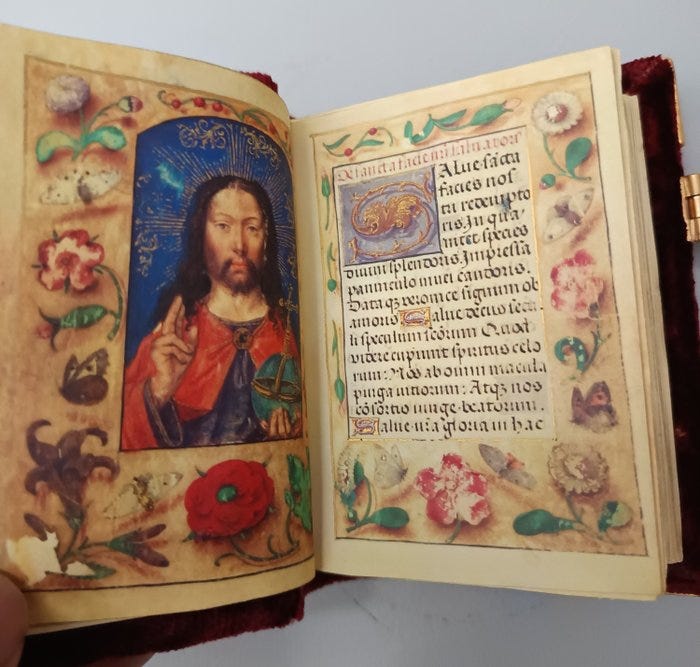 De sancta facie nr̄i saluatoris
Salue sācta
facies nos
tri redempto
ris. In qua
nitet species
diuini splendoris. Impressa
panniculo niuei candoris.
Dataqȝ veronice signum ob
amoris Salue decus secu
li speculum scōrum. Quod
videre cupiunt spiritus celo
rum: Nos ab omni macula
purga vitiorum: Atqȝ nos
cōsortio iunge beatorum.
Salue nr̄a gloria in hac